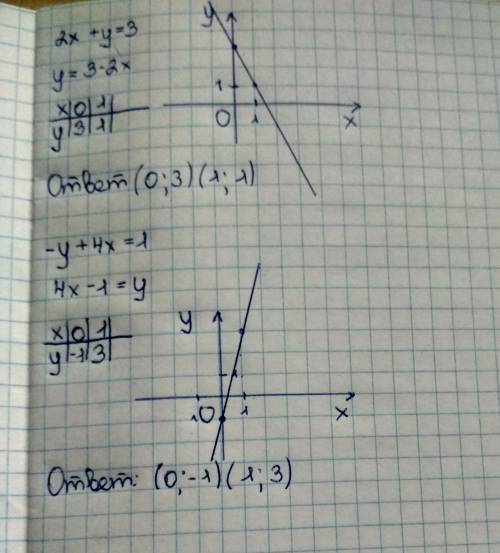 2x + y = 3
y = 3 - 2x
x | 0 | 1 |
y | 3 | 1 |
y
1
0 1 x
Ответ (0; 3) (1; 1)
-y + 4x = 1
4x - 1 = y
x | 0 | 1 |
y | -1 | 3 |
y
1
1 0 1 x
Ответ: (0; -1) (1; 3)